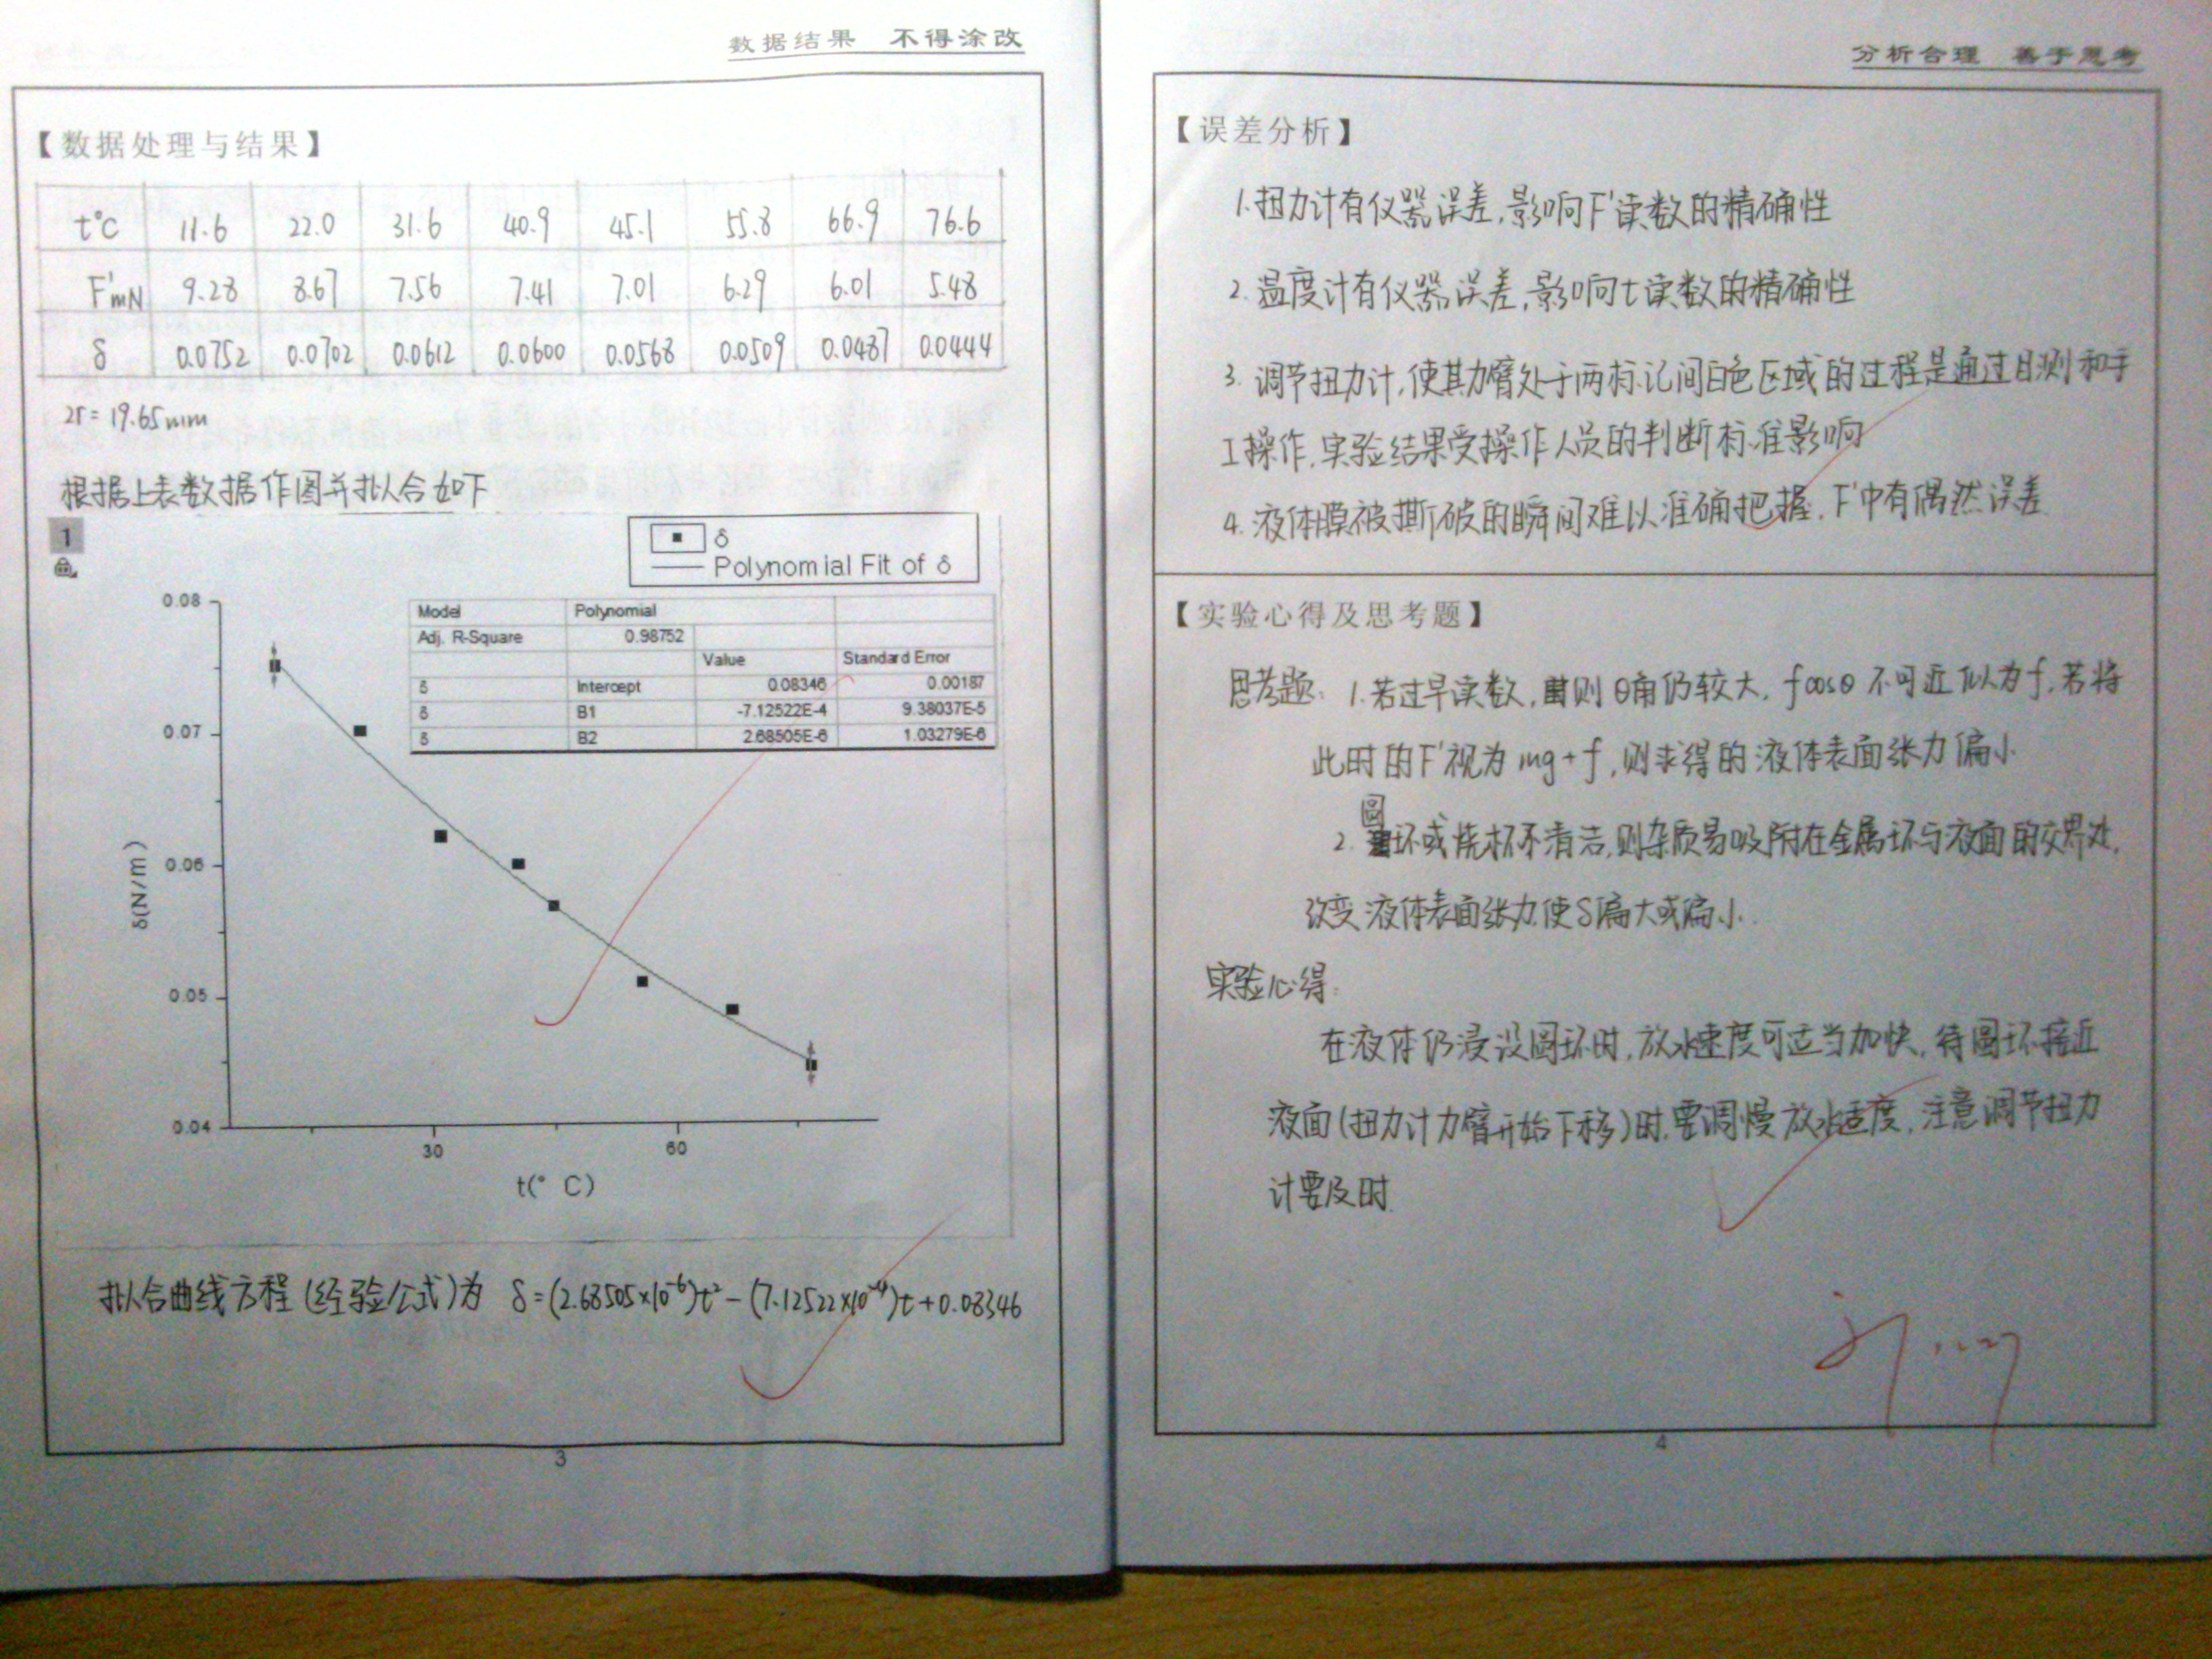 数据结果 不得涂改
【数据处理与结果】
t°C 11.6 22.0 31.6 40.9 45.1 55.8 66.9 76.6
F'mN 9.28 8.67 7.56 7.41 7.01 6.29 6.01 5.48
δ 0.0752 0.0702 0.0612 0.0600 0.0568 0.0509 0.0487 0.0444
2r=19.65mm
根据上表数据作图并拟合如下
1
δ
Polynomial Fit of δ
Model Polynomial
Adj. R-Square 0.98752
Value Standard Error
δ Intercept 0.08346 0.00187
δ B1 -7.12522E-4 9.38037E-5
δ B2 2.68505E-6 1.03279E-6
0.08
0.07
0.06
0.05
0.04
δ(N/m)
30 60
t(° C)
拟合曲线方程(经验公式)为 δ=(2.68505×10⁻⁶)t²-(7.12522×10⁻⁴)t+0.08346
3
分析合理 善于思考
【误差分析】
1.扭力计有仪器误差,影响F'读数的精确性
2.温度计有仪器误差,影响t读数的精确性
3.调节扭力计,使其力臂处于两标记间白色区域的过程是通过目测和手
工操作,实验结果受操作人员的判断标准影响
4.液体膜被撕破的瞬间难以准确把握,F'中有偶然误差
【实验心得及思考题】
思考题: 1.若过早读数,则θ角仍较大,fcosθ不可近似为f,若将
此时的F'视为mg+f,则求得的液体表面张力偏小
2.圆环或烧杯不清洁,则杂质易吸附在金属环与液面的交界处,
改变液体表面张力,使δ偏大或偏小.
实验心得:
在液体仍浸没圆环时,放水速度可适当加快,待圆环接近
液面(扭力计力臂开始下移)时,要调慢放水速度,注意调节扭力
计要及时
4